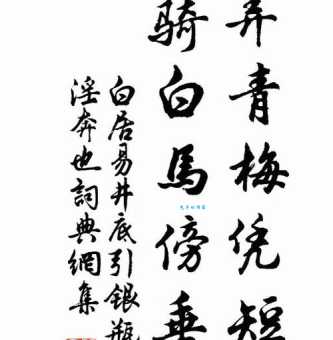 弄青梅凭短
骑白馬傍垂
白居易井底引银瓶
淫奔也詞典網集